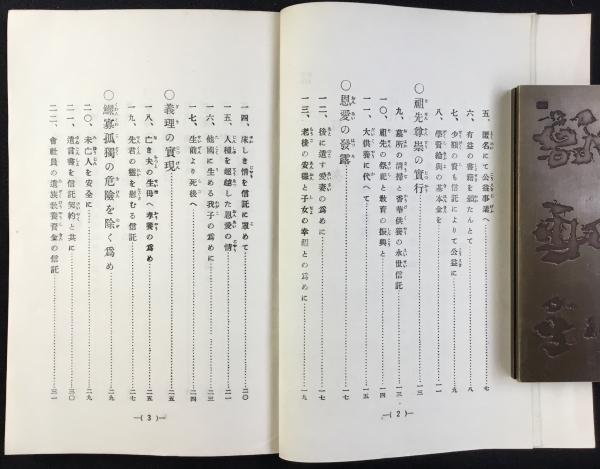 五、匿名にて公益事業へ……七
六、有益の書籍を頒たんとて……八
七、少額の資も信託によりて公益に……九
八、學資給與の基本金を……一一
○祖先尊崇の實行……一三
九、墓所の清掃と香華供養の永世信託……一三
一〇、祖先の祭祀と敎育の振興と……一四
一一、大供養に代へて……一六
○恩愛の發露……一八
一二、後に遺す愛妻の爲めに……一八
一三、老後の安穩と子女の幸福との爲めに……一九
—( 2 )—
一四、床しき情を信託に罩めて……二〇
一五、人種を超越した恩愛の情……二二
一六、他國に生める我子の爲めに……二三
一七、生前より死後へ……二四
○義理の實現……二五
一八、亡き夫の生母へ孝養の爲め……二五
一九、先君の靈を慰むる信託……二七
○鰥寡孤獨の危險を除く爲め……二九
二〇、未亡人を安全に……二九
二一、遺言書を信託契約と共に……三〇
二二、會社員の遺族敎養資金の信託……三一
—( 3 )—